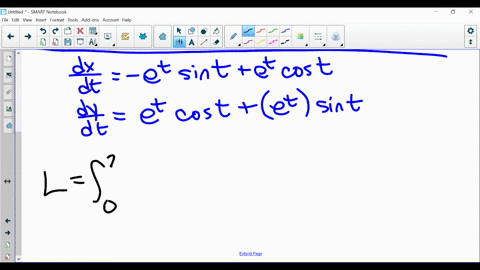 Untitled * - SMART Notebook
File Edit View Insert Format Tools Add-ons Account Help
dx/dt = -e^t sin t + e^t cos t
dy/dt = e^t cos t + (e^t) sin t
L = ∫_0^?
Extend Page